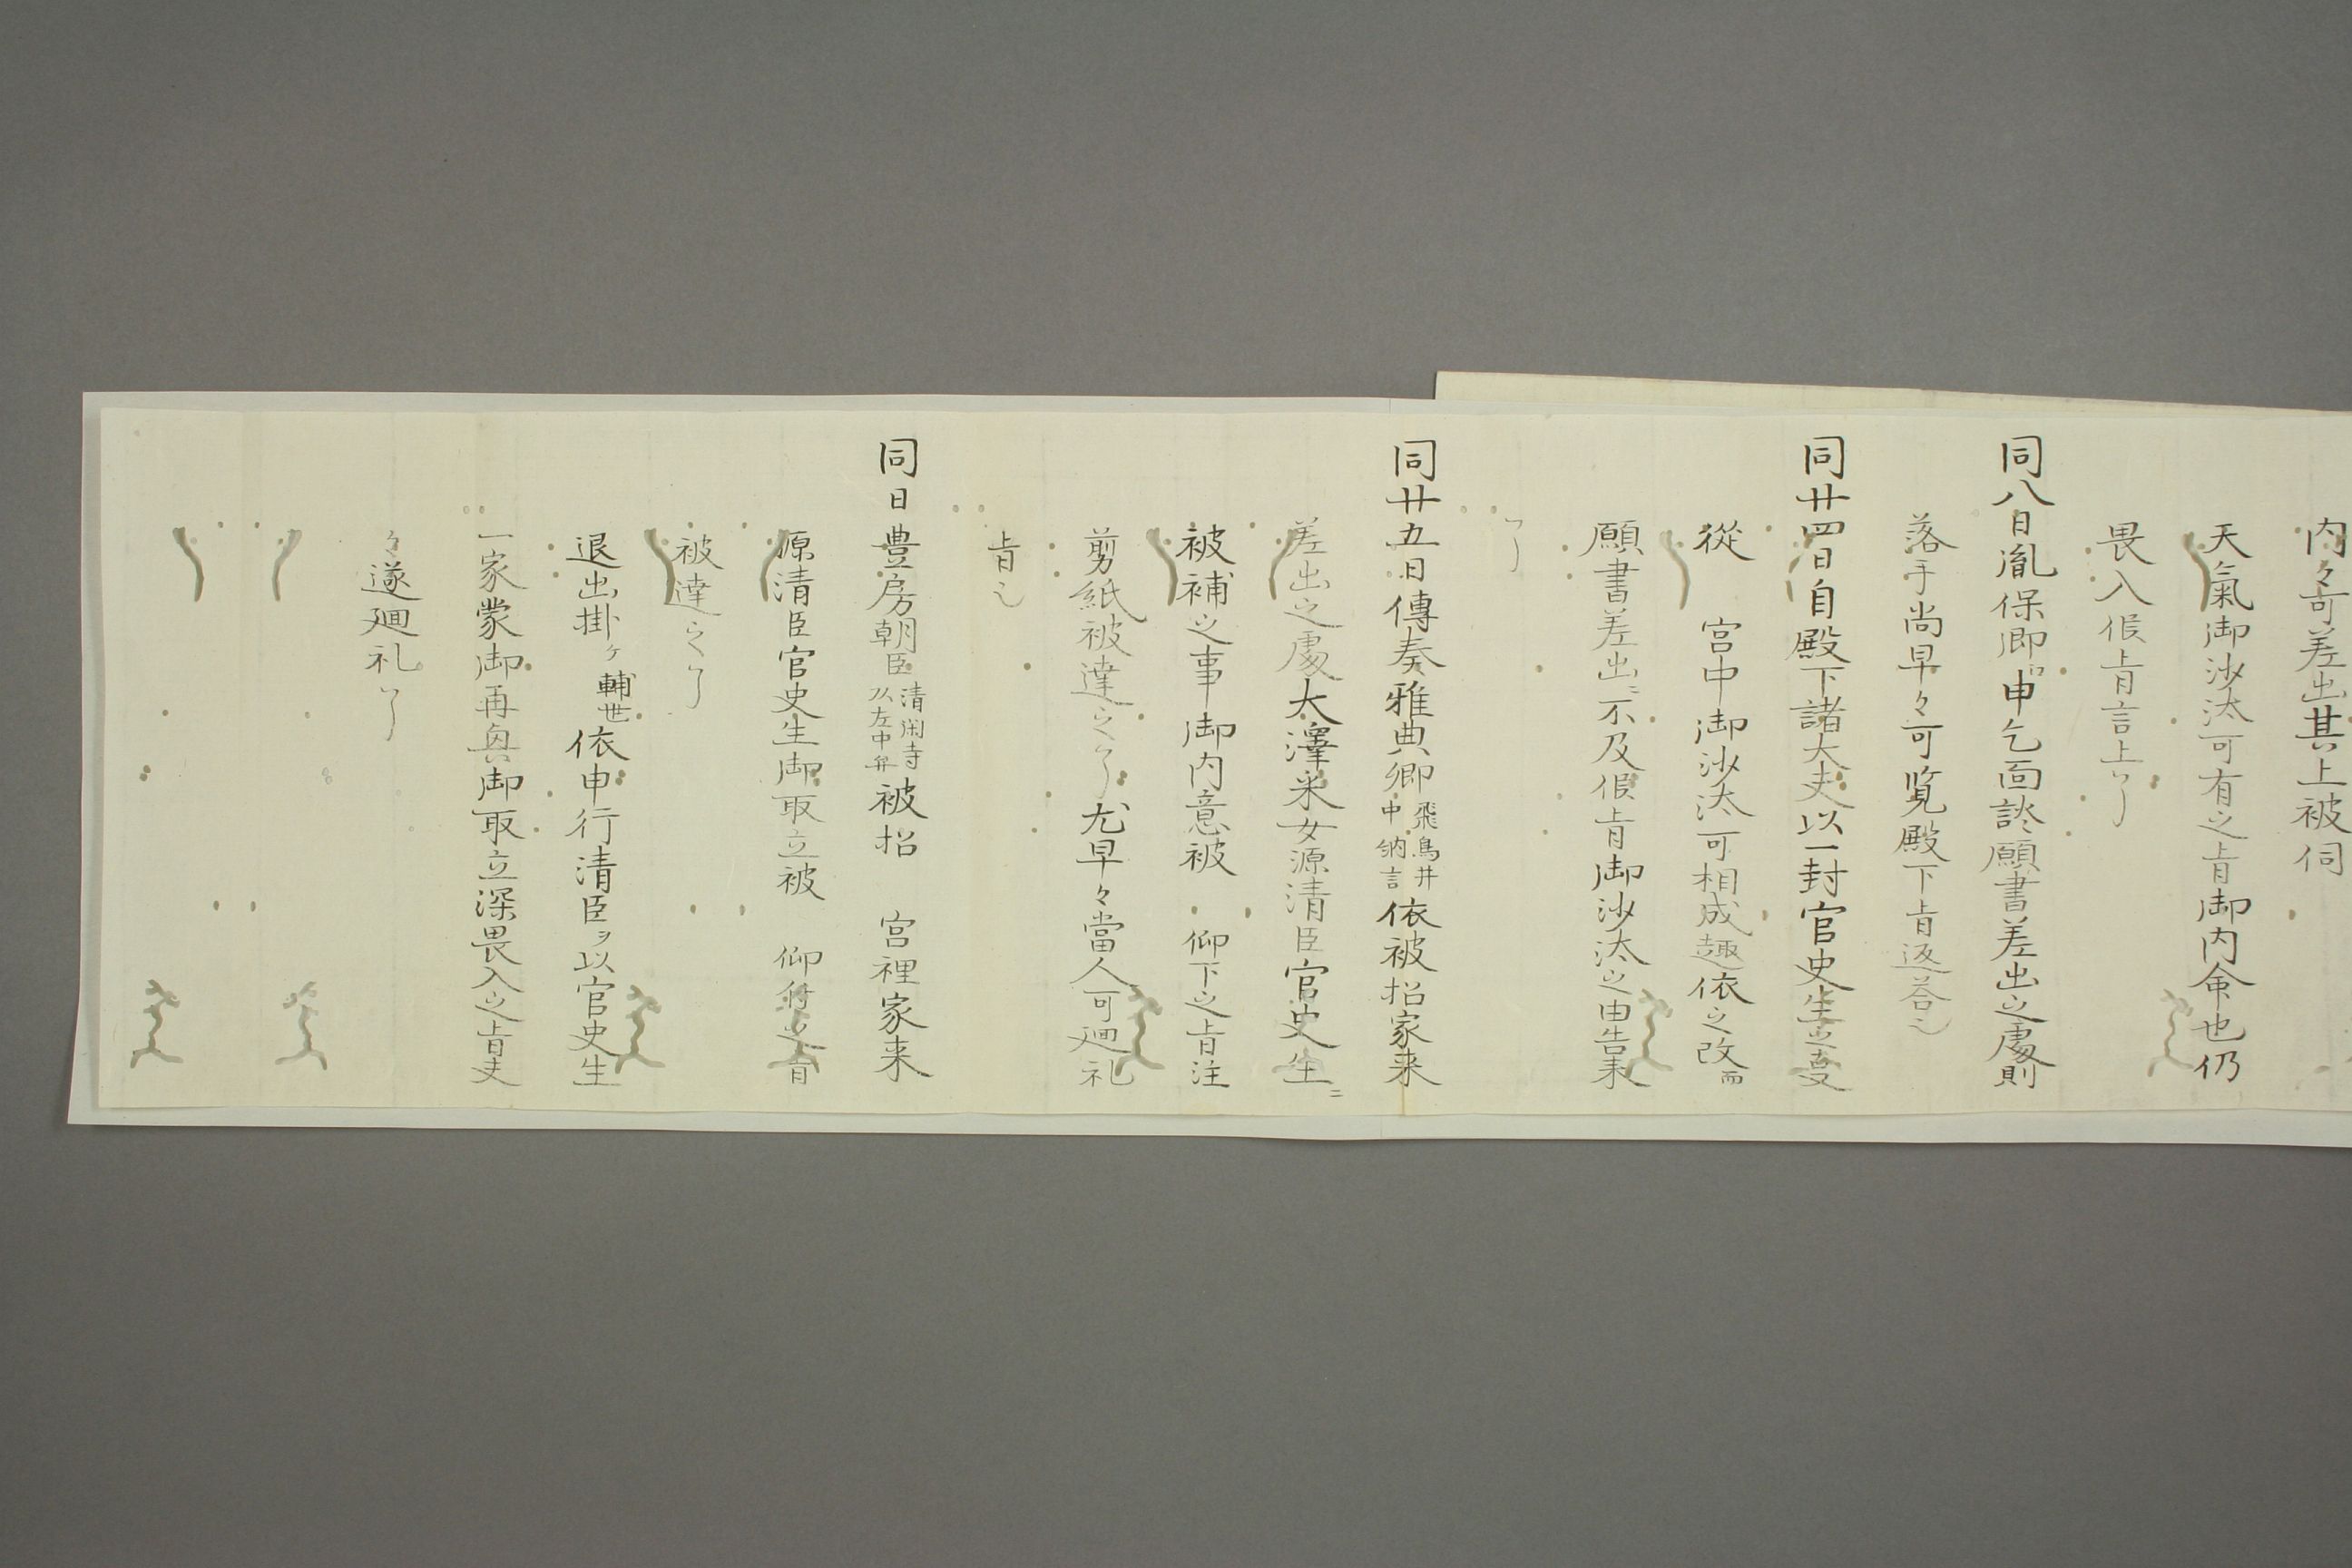 内々可差出其上被伺
天氣御沙汰可有之旨御内命也仍
畏入候旨言上了
同八日胤保卿江申乞面談願書差出之處則
落手尚早々可覧殿下旨返答也
同廿四日自殿下諸大夫以一封官史生之事
従　宮中御沙汰可相成趣依之改而
願書差出ニ不及候旨御沙汰之由告来
了
同廿五日傳奏雅典卿飛鳥井中納言依被招家来
差出之處大澤采女源清臣官史生ニ
被補之事御内意被　仰下之旨注
剪紙被達之了尤早々當人可廻礼
旨也
同日豊房朝臣清閑寺从左中弁被招　宮裡家来
源清臣官史生御取立被　仰付之旨
被達之了
退出掛ケ輔世依申行清臣ヲ以官史生
一家蒙御再興御取立深畏入之旨吏
々遂廻礼了